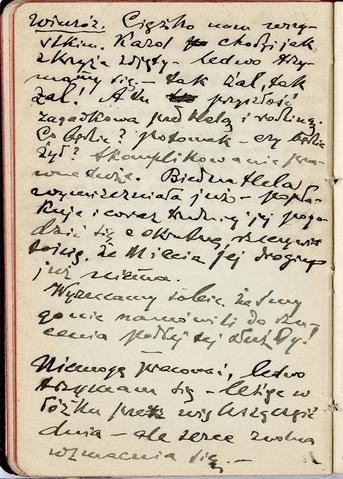 wiusz. Ciężko nam wszy-
stkim. Karol chodzi jak
z krzyża zdjęty - ledwo trzy-
mamy się - tak żal, tak
żal! A tu przyszłość
zagadkowa przed Helą i rodziną.
Co będzie? potomek - czy będzie
żył? Skomplikowanie praw-
ne duże. Biedna Hela
wymizerniała już - popła-
kuje i coraz trudniej jej pogo-
dzić się z okrutną rzeczywis-
tością, że Miecia jej drogiego
już niema.
Wyrzucamy sobie, żeśmy
go nie namówili do
cenia podłej tej służby!
Niemogę pracować, ledwo
trzymam się - leżę w
łóżku przez większą część
dnia - ale serce zwolna
wzmacnia się. -